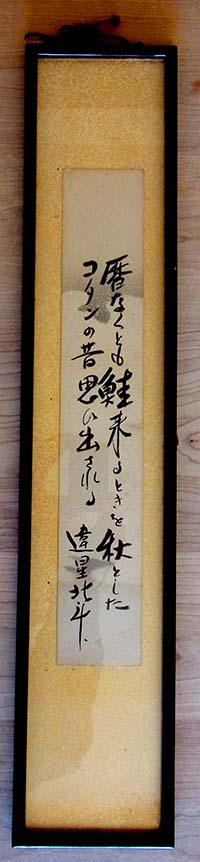 暦なくとも鮭来るときを秋とした
コタンの昔思ひ出される 違星北斗